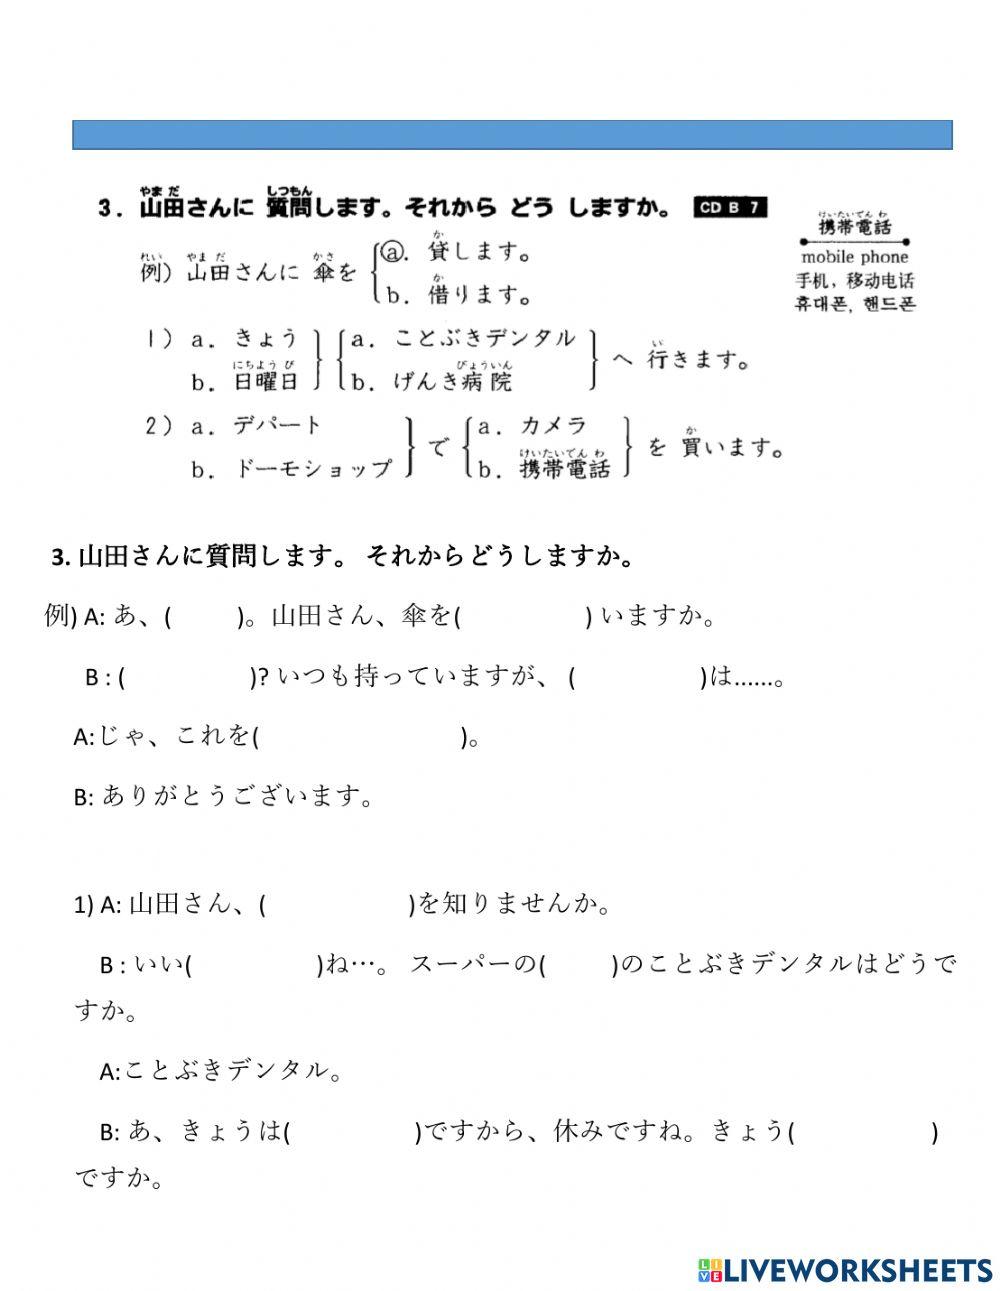 3. 山田さんに 質問します。それから どう しますか。 CD B 7
やま だ しつもん
けいたいでん わ
携帯電話
mobile phone
手机，移动电话
휴대폰, 핸드폰
れい やま だ かさ か
例) 山田さんに 傘を a. 貸します。
か
b. 借ります。
1) a. きょう a. ことぶきデンタル
へ 行きます。
い
にちよう び びょういん
b. 日曜日 b. げんき病院
2) a. デパート a. カメラ
で を 買います。
か
けいたいでん わ
b. ドーモショップ b. 携帯電話
3. 山田さんに質問します。 それからどうしますか。
例) A: あ、( )。山田さん、傘を( ) いますか。
B : ( )? いつも持っていますが、 ( )は......。
A:じゃ、これを( )。
B: ありがとうございます。
1) A: 山田さん、( )を知りませんか。
B : いい( )ね…。 スーパーの( )のことぶきデンタルはどうで
すか。
A:ことぶきデンタル。
B: あ、きょうは( )ですから、休みですね。きょう( )
ですか。
LIVE LIVEWORKSHEETS